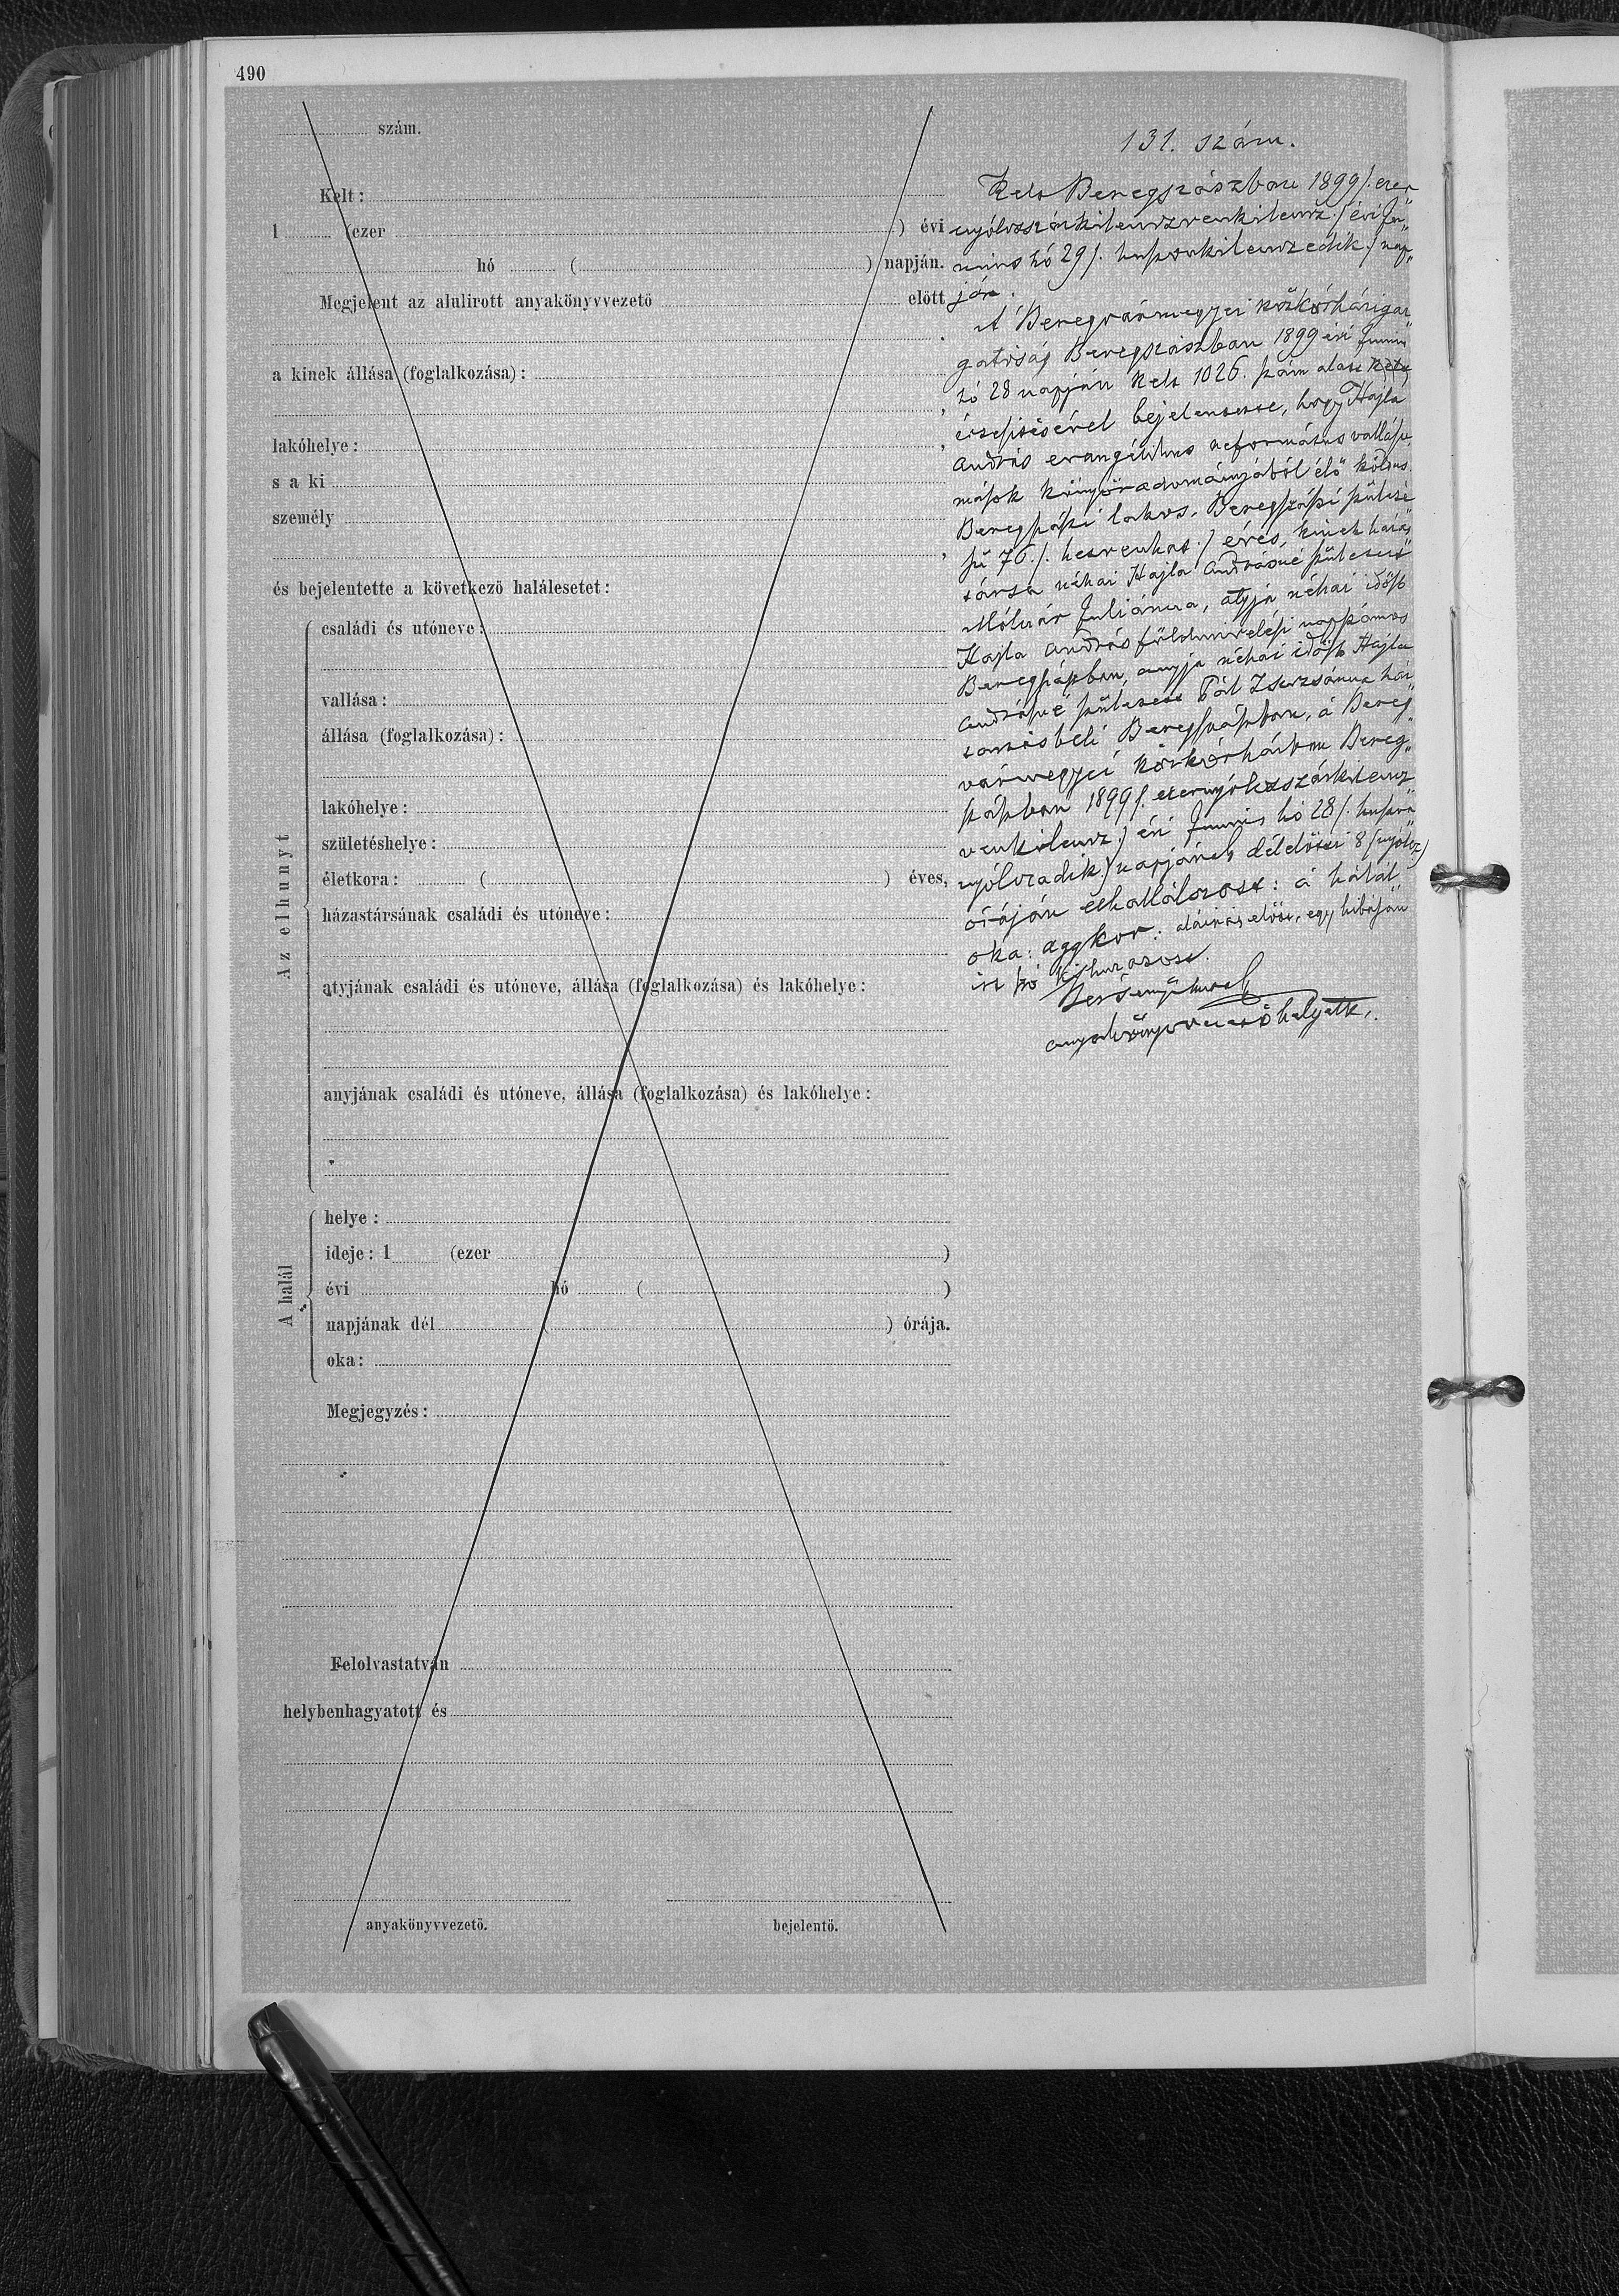 490
szám.
Kelt:
1 (ezer ) évi
hó ( ) napján.
Megjelent az alulirott anyakönyvvezető előtt
a kinek állása (foglalkozása):
lakóhelye:
s a ki
személy
és bejelentette a következő halálesetet:
Az elhunyt
családi és utóneve:
vallása:
állása (foglalkozása):
lakóhelye:
születéshelye:
életkora: ( ) éves,
házastársának családi és utóneve:
atyjának családi és utóneve, állása (foglalkozása) és lakóhelye:
anyjának családi és utóneve, állása (foglalkozása) és lakóhelye:
A halál
helye:
ideje: 1 (ezer )
évi hó ( )
napjának dél ( ) órája.
oka:
Megjegyzés:
Felolvastatván
helybenhagyatott és
anyakönyvvezető.
bejelentő.
131. szám.
Kelt Beregszászban 1899 /. ezer
nyólczszázkilenczvenkilencz./ évi Ju„
nius hó 29 /. huszonkilenczedik./ nap„
ján.
A Beregvármegyei közkórházigaz
gatóság Beregszászban 1899 évi Junius
hó 28 napján kelt 1026. szám alatt kelt
értesitésével bejelentette, hogy Hajla
András evangélikus református vallásu,
mások könyöradományából élő koldus
Beregszászi lakos, Beregszászi születé
sü 76 /. hetvenhat./ éves, kinek házas
társa néhai Hajla Andrásné született
Mólnár Juliánna, atyja néhai idősb
Hajla András földmivelési napszámos
Beregszászban, anyja néhai idősb Hajla
Andrásné született Pál Zsuzsánna ház
tartásbeli Beregszászban, a Bereg„
vármegyei közkórházban Bereg„
szászban 1899 /. ezernyólczszázkilencz
venkilencz./ évi Junius hó 28 /. huszon
nyólczadik./ napjának délelőtti 8 (nyólcz)
óráján elhalálozott: a halál
oka: aggkor: aláirás előtt, egy hibásan
irt szó kihuzatott.
anyakönyvvezető helyett.